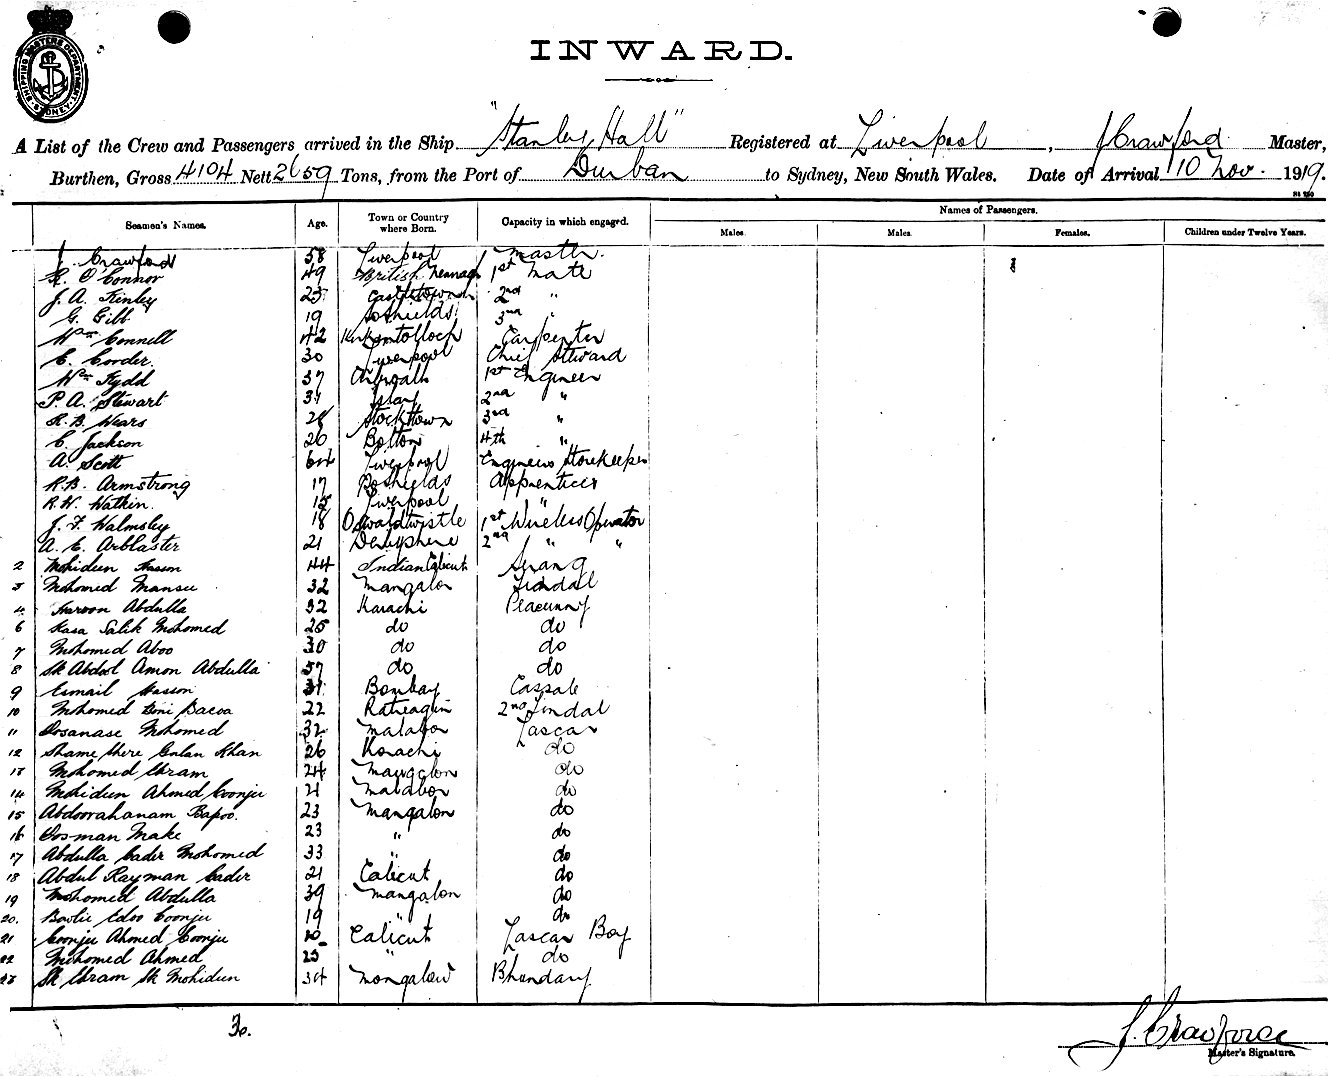 SHIPPING MASTERS DEPARTMENT SYDNEY
INWARD.
A List of the Crew and Passengers arrived in the Ship "Stanley Hall" Registered at Liverpool, J Crawford Master,
Burthen, Gross 4104 Nett 2659 Tons, from the Port of Durban to Sydney, New South Wales. Date of Arrival 10 Nov. 1919.
Seamen's Names. Age. Town or Country where Born. Capacity in which engaged. Names of Passengers.
Males. Males. Females. Children under Twelve Years.
J. Crawford 58 Liverpool Master.
R. O'Connor 49 British 1st Mate
J. A. Kinley 25 Castletown 2nd "
G. Gibb 19 So Shields 3rd "
Wm Connell 42 Kirkintolloch Carpenter
C. Corder. 30 Liverpool Chief Steward
Wm Kydd 37 Arbroath 1st Engineer
P. A. Stewart 31 Islay 2nd "
R. B. Wears 28 Stocktown 3rd "
C. Jackson 26 Bolton 4th "
A. Scott 64 Liverpool Engineers Storekeeper
R. B. Armstrong 17 So Shields Apprentices
R. W. Watkin. 18 Liverpool "
J. F. Walmsley 18 Oswaldtwistle 1st Wireless Operator
A. E. Arblaster 21 Derbyshire 2nd " "
2 Mohideen Hasson 44 Indian Calicut Serang
3 Mohomed Mansu 32 Mangalon Tindal
4 Haroon Abdulla 32 Karachi
6 Kasa Salik Mohomed 25 do do
7 Mohomed Aboo 30 do do
8 Sk Abdool Amon Abdulla 37 do do
9 Esmail Hasson 31 Bombay Cassab
10 Mohomed Bacoa 22 2nd Tindal
11 Oosanase Mohomed 32 Malabar Lascar
12 Shame Shere Gulan Khan 26 Karachi do
13 Mohomed Ebram 24 Mangalon do
14 Mohideen Ahmed Coonju 21 Malabar do
15 Abdoorahanam Bapoo. 23 Mangalon do
16 Oosman Make 23 " do
17 Abdulla Cader Mohomed 33 " do
18 Abdul Rayman Cader 21 Calicut do
19 Mohomed Abdulla 39 Mangalon do
20. Coonju 19 " do
21 Coonju Ahmed Coonju 20 Calicut Lascar Boy
22 Mohomed Ahmed 23 " do
23 Sk Ebram Sk Mohideen 34 Mongalow Bhandary
J. Crawford
Master's Signature.